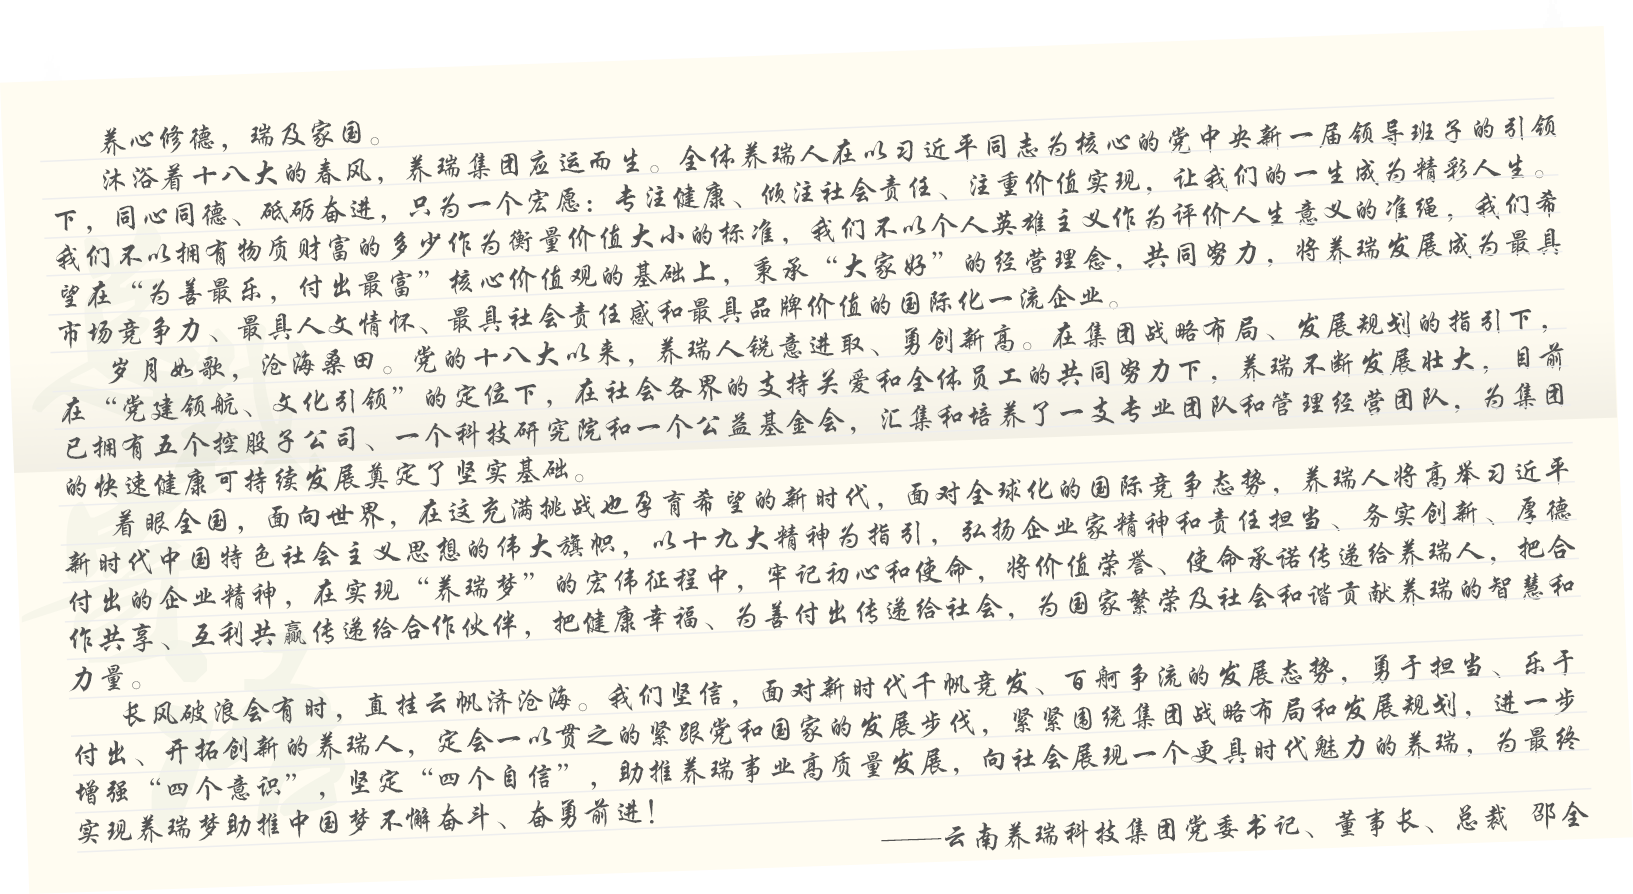 养心修德，瑞及家国。
沐浴着十八大的春风，养瑞集团应运而生。全体养瑞人在以习近平同志为核心的党中央新一届领导班子的引领
下，同心同德、砥砺奋进，只为一个宏愿：专注健康、倾注社会责任、注重价值实现，让我们的一生成为精彩人生。
我们不以拥有物质财富的多少作为衡量价值大小的标准，我们不以个人英雄主义作为评价人生意义的准绳，我们希
望在“为善最乐，付出最富”核心价值观的基础上，秉承“大家好”的经营理念，共同努力，将养瑞发展成为最具
市场竞争力、最具人文情怀、最具社会责任感和最具品牌价值的国际化一流企业。
岁月如歌，沧海桑田。党的十八大以来，养瑞人锐意进取、勇创新高。在集团战略布局、发展规划的指引下，
在“党建领航、文化引领”的定位下，在社会各界的支持关爱和全体员工的共同努力下，养瑞不断发展壮大，目前
已拥有五个控股子公司、一个科技研究院和一个公益基金会，汇集和培养了一支专业团队和管理经营团队，为集团
的快速健康可持续发展奠定了坚实基础。
着眼全国，面向世界，在这充满挑战也孕育希望的新时代，面对全球化的国际竞争态势，养瑞人将高举习近平
新时代中国特色社会主义思想的伟大旗帜，以十九大精神为指引，弘扬企业家精神和责任担当、务实创新、厚德
付出的企业精神，在实现“养瑞梦”的宏伟征程中，牢记初心和使命，将价值荣誉、使命承诺传递给养瑞人，把合
作共享、互利共赢传递给合作伙伴，把健康幸福、为善付出传递给社会，为国家繁荣及社会和谐贡献养瑞的智慧和
力量。
长风破浪会有时，直挂云帆济沧海。我们坚信，面对新时代千帆竞发、百舸争流的发展态势，勇于担当、乐于
付出、开拓创新的养瑞人，定会一以贯之的紧跟党和国家的发展步伐，紧紧围绕集团战略布局和发展规划，进一步
增强“四个意识”，坚定“四个自信”，助推养瑞事业高质量发展，向社会展现一个更具时代魅力的养瑞，为最终
实现养瑞梦助推中国梦不懈奋斗、奋勇前进！
——云南养瑞科技集团党委书记、董事长、总裁 邵全